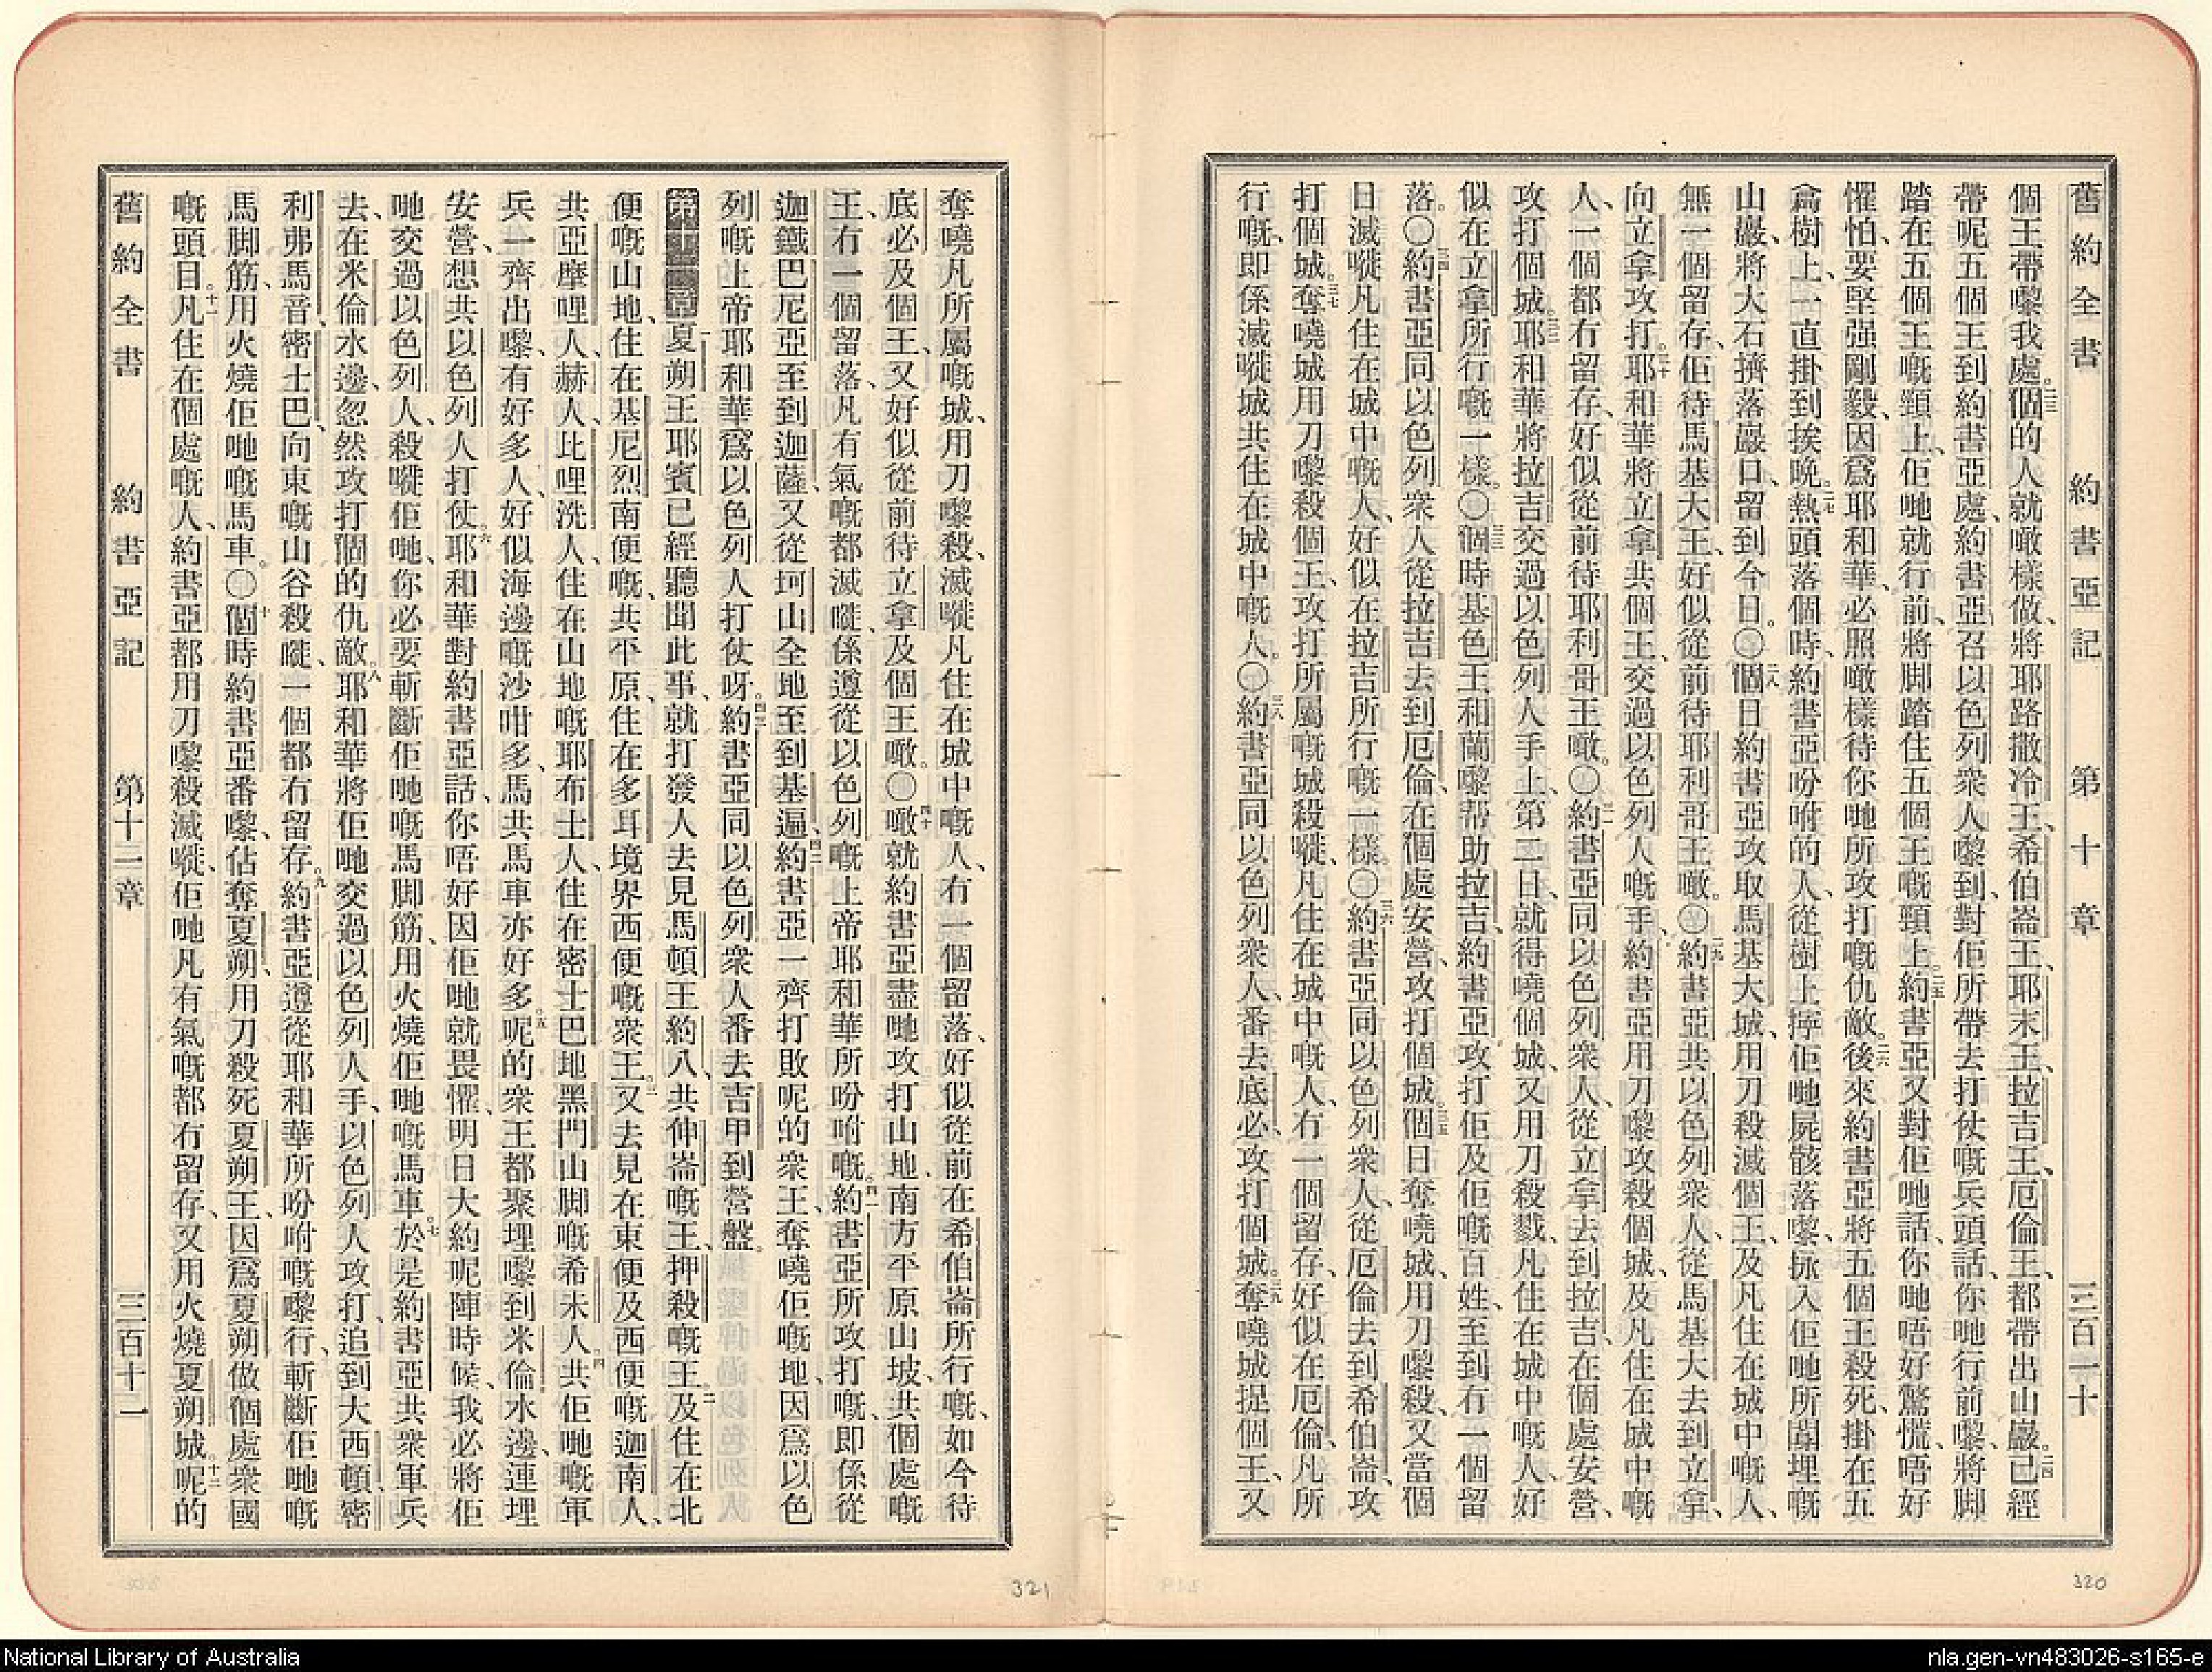 舊約全書 約書亞記 第十章 三百一十
個王帶嚟我處。二三個的人就噉樣做、將耶路撒冷王、希伯崙王、耶末王、拉吉王、厄倫王、都帶出山巖。二四已經
帶呢五個王到約書亞處、約書亞召以色列衆人嚟到、對佢所帶去打仗嘅兵頭話、你哋行前嚟、將脚
踏在五個王嘅頸上、佢哋就行前、將脚踏住五個王嘅頸上。二五約書亞又對佢哋話、你哋唔好驚慌、唔好
懼怕、要堅强剛毅、因爲耶和華、必照噉樣待你哋所攻打嘅仇敵。二六後來約書亞將五個王殺死、掛在五
樖樹上、一直掛到挨晚。二七熱頭落個時、約書亞吩咐的人、從樹上擰佢哋屍骸落嚟、掞入佢哋所匿埋嘅
山巖、將大石擠落巖口、留到今日。〇二八個日約書亞攻取馬基大城、用刀殺滅個王、及凡住在城中嘅人、
無一個留存、佢待馬基大王、好似從前待耶利哥王噉。〇二九約書亞共以色列衆人、從馬基大去到立拿、
向立拿攻打。三十耶和華將立拿共個王、交過以色列人嘅手、約書亞用刀嚟攻殺個城、及凡住在城中嘅
人、一個都冇留存、好似從前待耶利哥王噉。〇三一約書亞同以色列衆人、從立拿去到拉吉、在個處安營、
攻打個城。三二耶和華將拉吉交過以色列人手上、第二日、就得嘵個城、又用刀殺戮、凡住在城中嘅人、好
似在立拿所行嘅一樣。〇三三個時基色王和蘭嚟帮助拉吉、約書亞攻打佢及佢嘅百姓、至到冇一個留
落。〇三四約書亞同以色列衆人從拉吉去到厄倫、在個處安營、攻打個城。三五個日奪嘵城、用刀嚟殺、又當個
日滅嘥凡住在城中嘅人、好似在拉吉所行嘅一樣。〇三六約書亞同以色列衆人、從厄倫去到希伯崙、攻
打個城。三七奪嘵城用刀嚟殺個王、攻打所屬嘅城殺嘥、凡住在城中嘅人、冇一個留存、好似在厄倫、凡所
行嘅、即係滅嘥城共住在城中嘅人。〇三八約書亞同以色列衆人、番去底必、攻打個城。三九奪嘵城捉個王、又
320
舊約全書 約書亞記 第十一章 三百十一
奪嘵凡所屬嘅城、用刀嚟殺、滅嘥凡住在城中嘅人、冇一個留落、好似從前在希伯崙所行嘅、如今待
底必及個王、又好似從前待立拿及個王噉。〇四十噉就約書亞盡哋攻打山地、南方平原山坡、共個處嘅
王、冇一個留落、凡有氣嘅都滅嘥、係遵從以色列嘅上帝耶和華所吩咐嘅。四一約書亞所攻打嘅、即係從
迦鐵巴尼亞至到迦薩、又從坷山全地至到基遍。四二約書亞一齊打敗呢的衆王、奪嘵佢嘅地、因爲以色
列嘅上帝耶和華爲以色列人打仗呀。四三約書亞同以色列衆人番去吉甲到營盤。
第十一章 一夏朔王耶賓已經聽聞此事、就打發人去見馬頓王約八、共伸崙嘅王、押殺嘅王。二及住在北
便嘅山地、住在基尼烈南便嘅、共平原、住在多耳境界西便嘅衆王。三又去見在東便及西便嘅迦南人、
共亞摩哩人、赫人、比哩洗人、住在山地嘅耶布士人、住在密士巴地黑門山脚嘅希未人。四共佢哋嘅軍
兵一齊出嚟、有好多人、好似海邊嘅沙咁多、馬共馬車亦好多。五呢的衆王都聚埋嚟到米倫水邊、連埋
安營、想共以色列人打仗。六耶和華對約書亞話、你唔好因佢哋就畏懼、明日大約呢陣時候、我必將佢
哋交過以色列人、殺嘥佢哋、你必要斬斷佢哋嘅馬脚筋、用火燒佢哋嘅馬車。七於是約書亞共衆軍兵
去、在米倫水邊、忽然攻打個的仇敵。八耶和華將佢哋交過以色列人手、以色列人攻打、追到大西頓、密
利弗馬音、密士巴、向東嘅山谷殺嘥、一個都冇留存。九約書亞遵從耶和華所吩咐嘅嚟行、斬斷佢哋嘅
馬脚筋、用火燒佢哋嘅馬車。〇十個時約書亞番嚟、佔奪夏朔、用刀殺死夏朔王、因爲夏朔做個處衆國
嘅頭目。十一凡住在個處嘅人、約書亞都用刀嚟殺滅嘥、佢哋凡有氣嘅都冇留存、又用火燒夏朔城。十二呢的
321
National Library of Australia
nla.gen-vn483026-s165-e